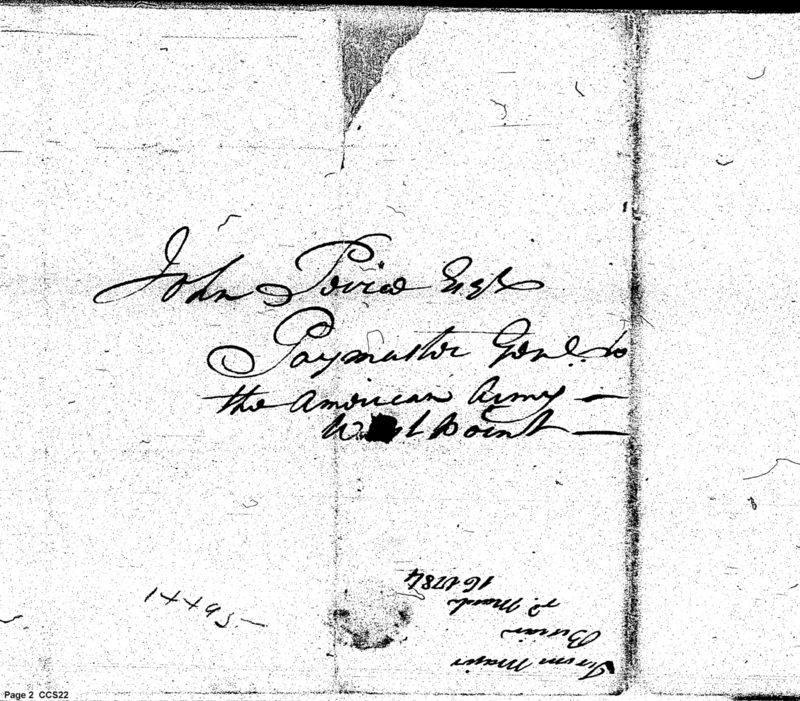 John Peirce Esqr
Paymaster Genl. to
the American Army —
West Point —
14495 —
From Major
Burnin
16 1784
Page 2 CCS22